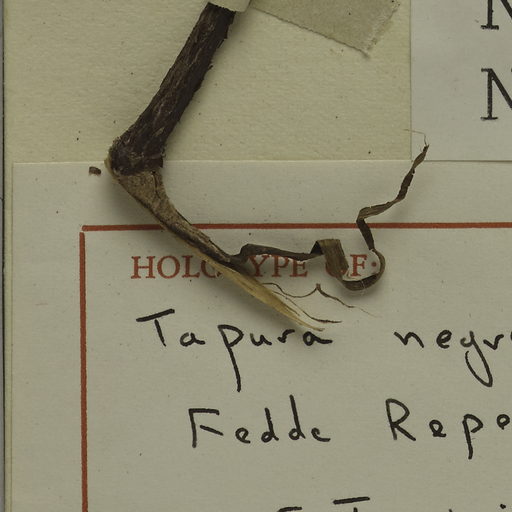 N
N
HOLOTYPE OF
Tapura negr
Fedde Repe